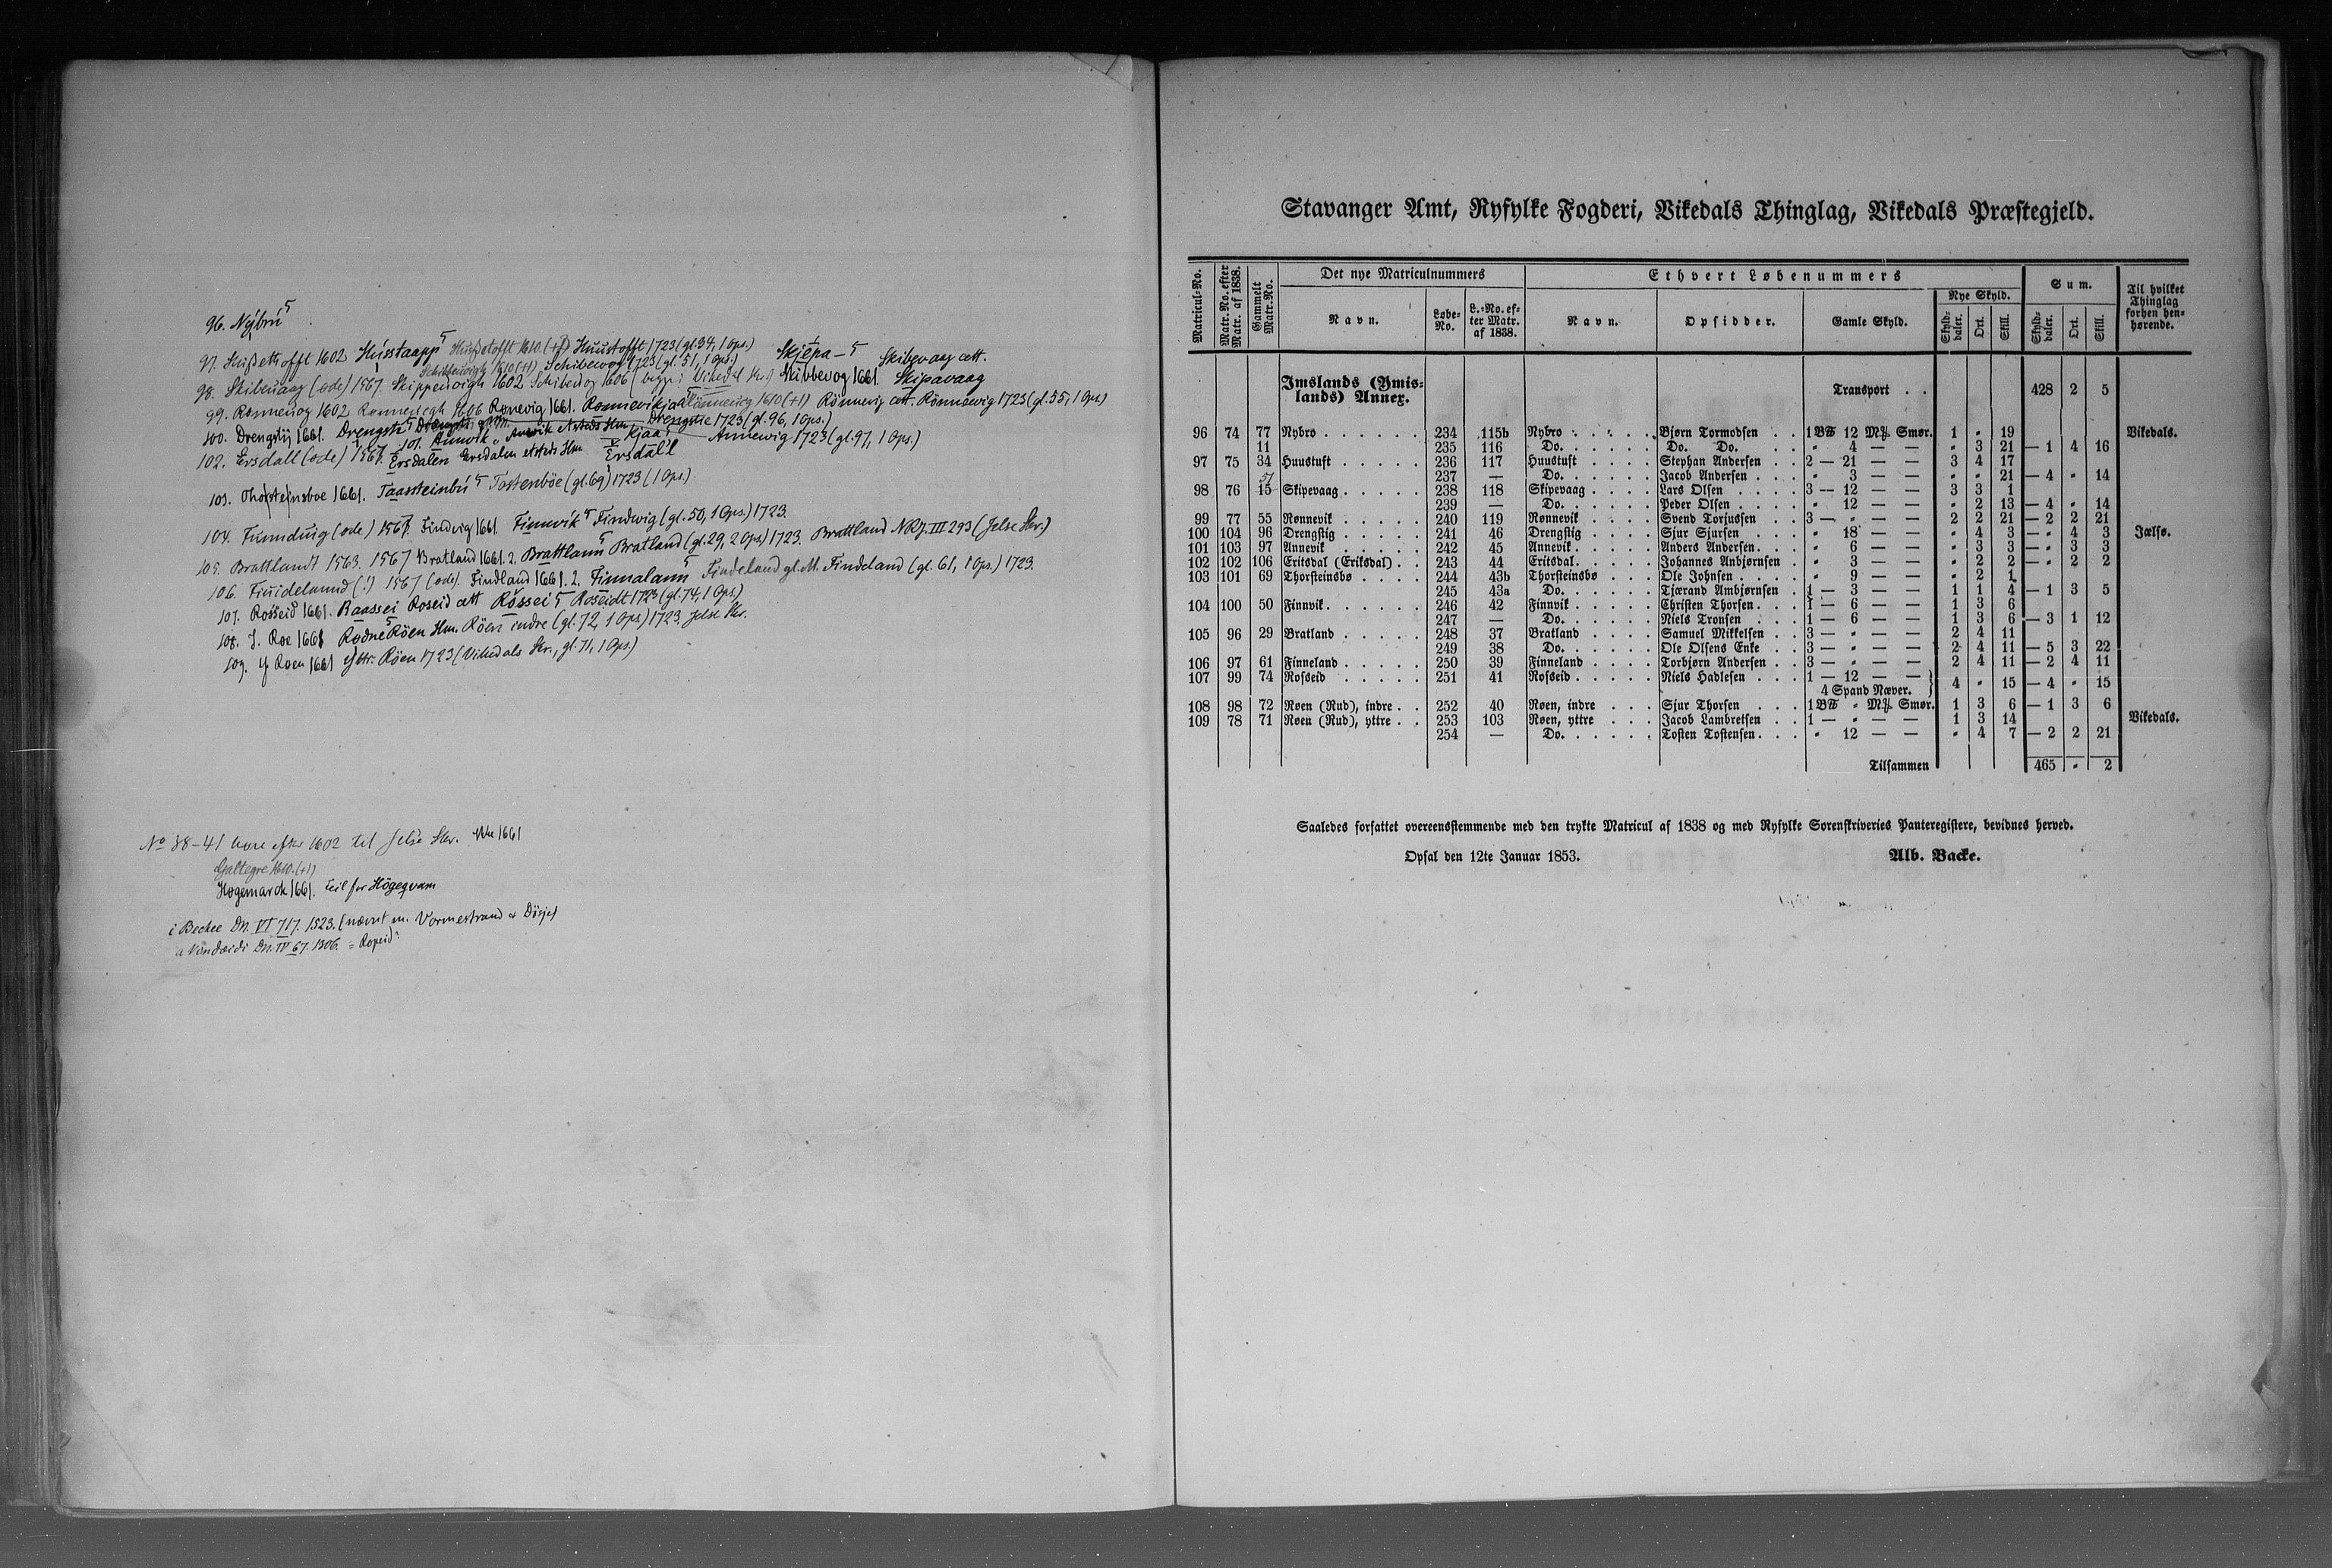 96. Nýbrú 5
97. Husstaapp 5 Huustofft 1723 (gl. 34, 1 Ops.)
98. Skibeuaag (öde) 1567. Skippeuoigh 1602 Schibevog 1723 (gl. 51, 1 Ops.) Skibbevog 1661. Skjepa- 5 Skibevaag ætt. Skipavaag
99. Ronneuog 1602 Ronevig 1661. Rönnevig ætt. Rönnewig 1723 (gl. 55, 1 Ops.)
100. Drengstij 1661. Drengstie 1723 (gl. 96, 1 Ops.)
101. Annvik Annewig 1723 (gl. 97, 1 Ops.)
102. Ersdall (öde) 1567. Ersdalen Ersdalen Hm Ersdal'l
103. Thorsteinsboe 1661. Taassteinbú 5 Tostenböe (gl. 69) 1723 (1 Ops.)
104. 1567. Findvig 1661. Finnvik 5 Findwig (gl. 50, 1 Ops.) 1723.
105. Brattlandt 1563. 1567 Bratland 1661. 2. Brattlann 5 Bratland (gl. 29, 2 Ops) 1723. Brattland NRJ. III 293 (Jelse Skr.)
106. 1567 (öde). Findland 1661. 2. Finnalann 5 Findeland gl. M. Findeland (gl. 61, 1 Ops.) 1723.
107. Rosseid 1661. Raassei Roseid ætt Róssei 5 Roseidt 1723 (gl. 74, 1 Ops.)
108. J. Roe 1661 Rödne 5 Röen Hm. Röen indre (gl. 72, 1 Ops) 1723. Jelse Skr.
109. Y Roen 1661 Yttr. Röen 1723 (Vikedals Skr., gl. 71, 1 Ops.)
No 38-41 vare efter 1602 til Jelse Skr. 1661
Galtegre 1610. (+)
Høgemarck 1661. feil for Högeqvam
i Beckee Dn. VI 717. 1523. (nævnt m. Vormestrand
Dn. IV 67. 1306. = Ropeid?
Stavanger Amt, Ryfylke Fogderi, Vikedals Thinglag, Vikedals Præstegjeld.
Matricul-No. Matr.No. efter Matr. af 1838. Gammelt Matr.-No. Det nye Matriculnummers Ethvert Løbenummers Sum. Til hvilket Thinglag forhen henhørende.
Navn. Løbe-No. L.-No. efter Matr. af 1838. Navn. Opsidder. Gamle Skyld. Nye Skyld. Skylddaler. Ort. Skill. Skylddaler. Ort. Skill.
Imslands (Ymislands) Annex. Transport . . 428 2 5
96 74 77 Nybro . . . . . . 234 115b Nybro . . . . . Bjørn Tormodsen . . 1 BW 12 M℔. Smør. 1 " 19 Vikedals.
11 235 116 Do. . . . . . Do. Do. . . " 4 — — " 3 21 — 1 4 16
97 75 34 Huustuft . . . . . 236 117 Huustuft . . . . Stephan Andersen . . 2 — 21 — — 3 4 17
237 — Do. . . . . . Jacob Andersen . . . " 3 — — " " 21 — 4 " 14
51
98 76 15 Skipevaag . . . . . 238 118 Skipevaag . . . . Lars Olsen . . . . 3 — 12 — — 3 3 1
239 — Do. . . . . . Peder Olsen . . . . " 12 — — " 2 13 — 4 " 14
99 77 55 Rønnevik . . . . . 240 119 Rønnevik . . . . Svend Torjussen . . 3 — " — — 2 2 21 — 2 2 21
100 104 96 Drengstig . . . . . 241 46 Drengstig . . . . Sjur Sjursen . . . " 18 — — " 4 3 — " 4 3 Jælsø.
101 103 97 Annevik . . . . . 242 45 Annevik . . . . . Anders Andersen . . . " 6 — — " 3 3 — " 3 3
102 102 106 Eritsdal (Eriksdal) . . 243 44 Eritsdal . . . . . Johannes Anbjørnsen . " 3 — — " 2 2 — " 2 2
103 101 69 Thorsteinsbø . . . . 244 43b Thorsteinsbø . . . Ole Johnsen . . . . " 9 — — " 2 1
245 43a Do. . . . . . Tjærand Ambjørnsen . 1 — 3 — — 1 1 4 — 1 3 5
104 100 50 Finnvik . . . . . . 246 42 Finnvik . . . . . Christen Thorsen . . . 1 — 6 — — 1 3 6
247 — Do. . . . . . Niels Tronsen . . . 1 — 6 — — 1 3 6 — 3 1 12
105 96 29 Bratland . . . . . 248 37 Bratland . . . . Samuel Mikkelsen . . 3 — " — — 2 4 11
249 38 Do. . . . . . Ole Olsens Enke . . 3 — " — — 2 4 11 — 5 3 22
106 97 61 Finneland . . . . . 250 39 Finneland . . . . Torbjørn Andersen . . 3 — " — — 2 4 11 — 2 4 11
107 99 74 Rosseid . . . . . 251 41 Rosseid . . . . . Niels Hadlesen . . . 1 — 12 — — } 4 " 15 — 4 " 15
4 Spand Næver.
108 98 72 Røen (Rud), indre . . 252 40 Røen, indre . . . Sjur Thorsen . . . 1 BW " M℔. Smør. 1 3 6 — 1 3 6
109 78 71 Røen (Rud), yttre . . 253 103 Røen, yttre . . . Jacob Lambretsen . . 1 — " — — 1 3 14 Vikedals.
254 — Do. . . . . . Tosten Tostensen . . . " 12 — — " 4 7 — 2 2 21
Tilsammen 465 " 2
Saaledes forfattet overeensstemmende med den trykte Matricul af 1838 og med Ryfylke Sorenskriveries Panteregistere, bevidnes herved.
Opsal den 12te Januar 1853. Alb. Backe.